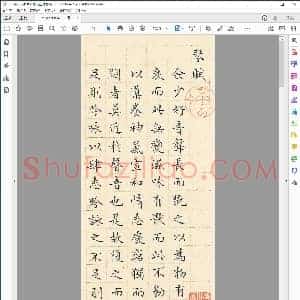 琴賦
余少好音聲長而翫之以為物有
衰而此無變滋味有猒而此不勌
以導養神氣宣和情志處窮獨而
悶者莫近於音聲也是故復之而
足則吟詠以肆志吟詠之不足則
Shufaziliao.com